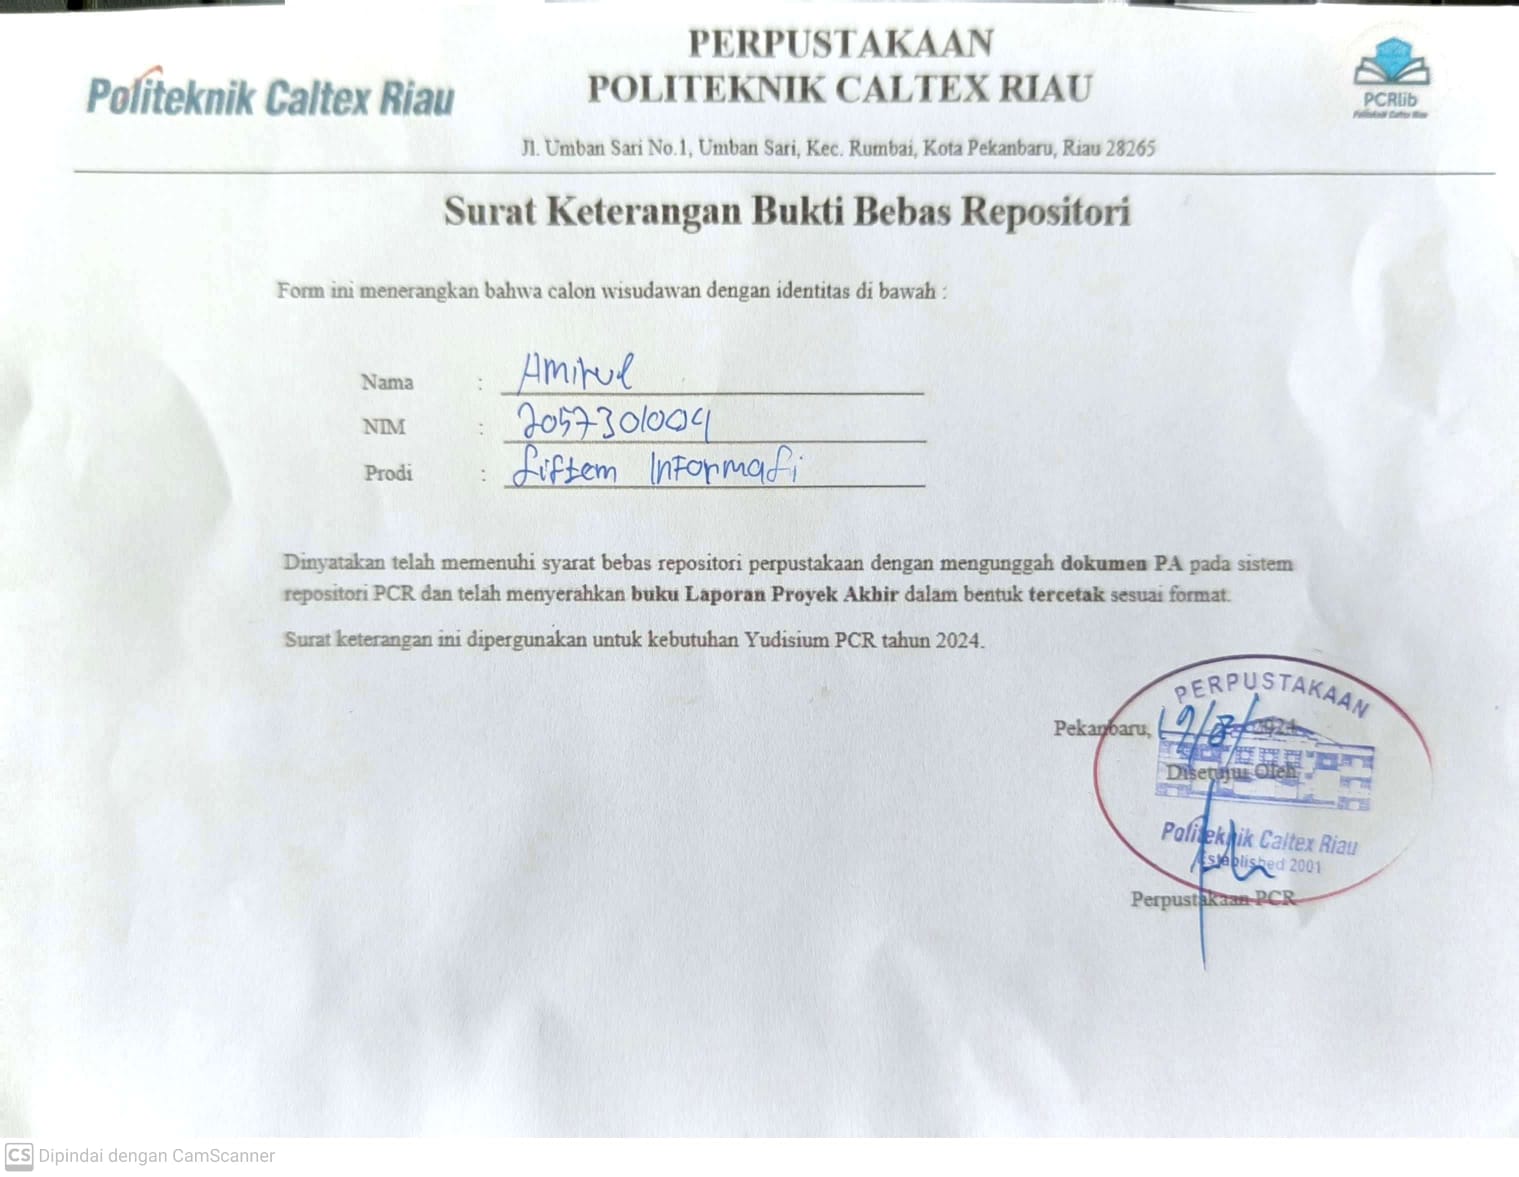 PERPUSTAKAAN
POLITEKNIK CALTEX RIAU
Politeknik Caltex Riau
PCRlib
Politeknik Caltex Riau
Jl. Umban Sari No.1, Umban Sari, Kec. Rumbai, Kota Pekanbaru, Riau 28265
Surat Keterangan Bukti Bebas Repositori
Form ini menerangkan bahwa calon wisudawan dengan identitas di bawah :
Nama : Amirul
NIM : 2057301004
Prodi : Sistem Informasi
Dinyatakan telah memenuhi syarat bebas repositori perpustakaan dengan mengunggah dokumen PA pada sistem
repositori PCR dan telah menyerahkan buku Laporan Proyek Akhir dalam bentuk tercetak sesuai format.
Surat keterangan ini dipergunakan untuk kebutuhan Yudisium PCR tahun 2024.
PERPUSTAKAAN
Pekanbaru, 19/8/ 2024
Disetujui Oleh
Politeknik Caltex Riau
Established 2001
Perpustakaan PCR
CS Dipindai dengan CamScanner